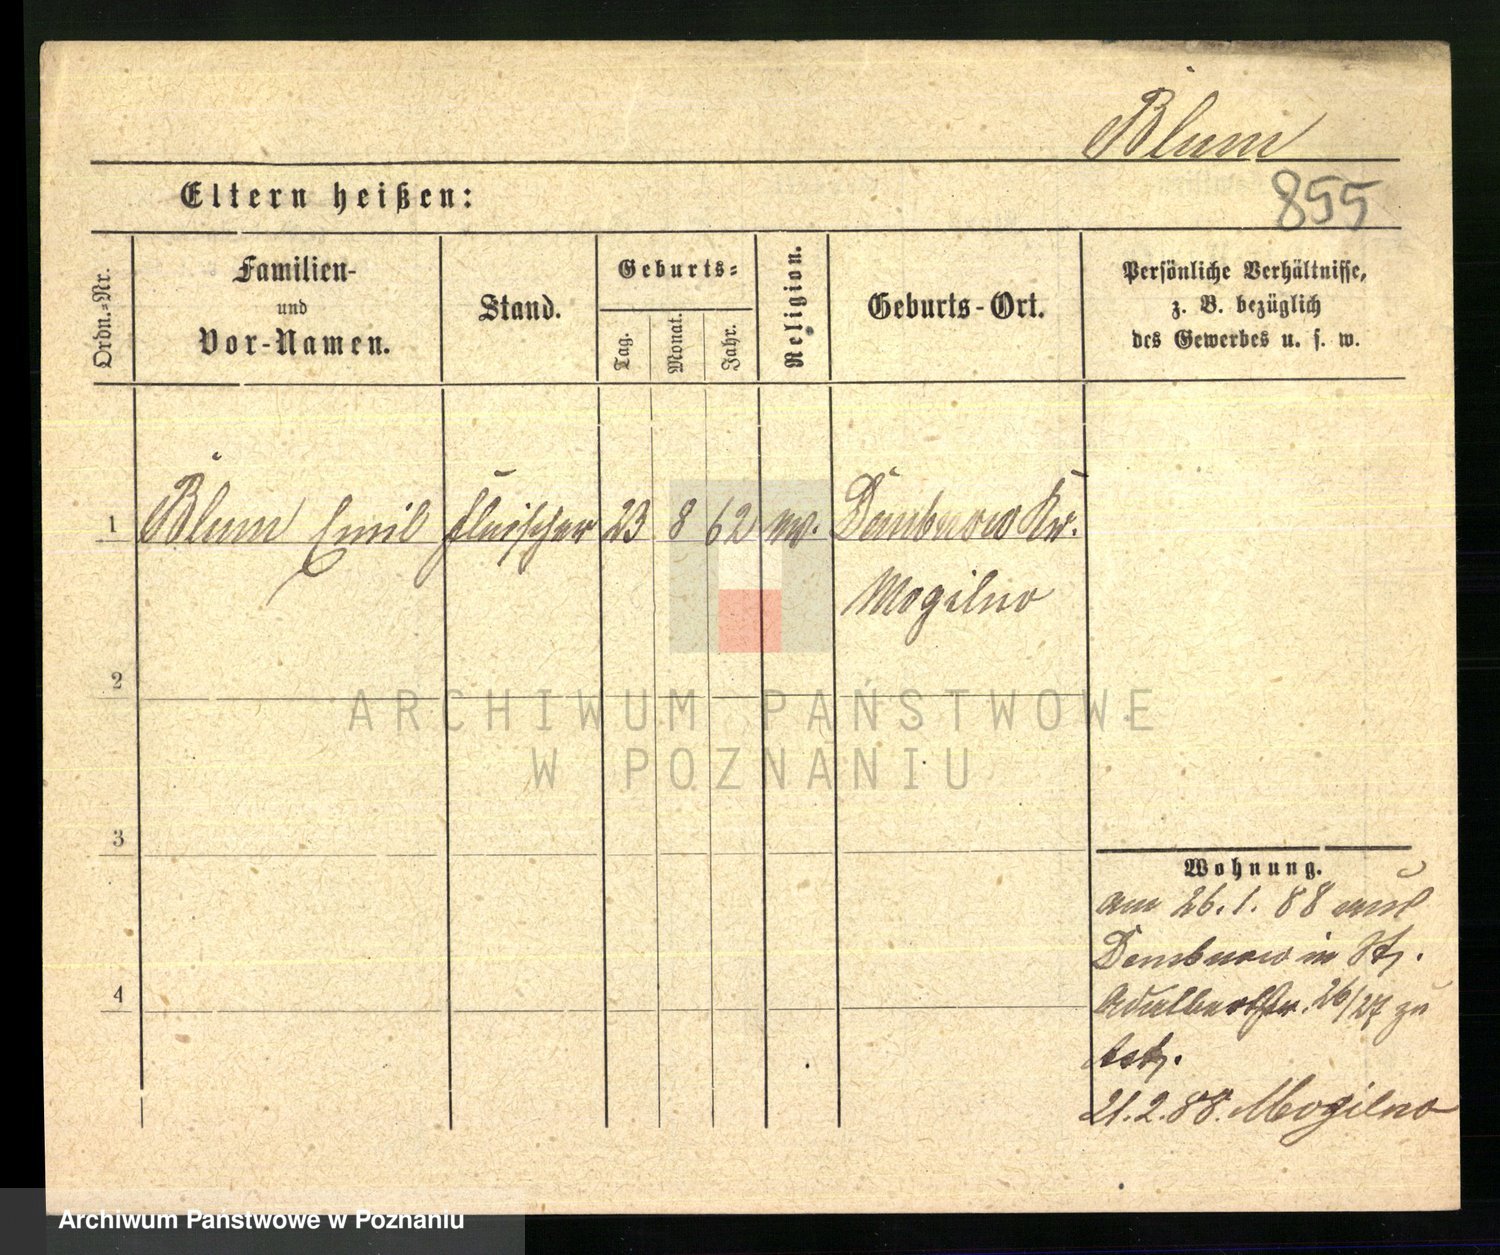 Blum
Eltern heißen:
855
Ordn.-Nr.
Familien-
und
Vor-Namen.
Stand.
Geburts-
Tag.
Monat.
Jahr.
Religion.
Geburts-Ort.
Persönliche Verhältnisse,
z. B. bezüglich
des Gewerbes u. s. w.
1 Blum Emil Fleischer 23 8 62 ev. Dembnow Kr.
Mogilno
2
3
4
Wohnung.
am 26.1.88 aus
Dembnow in
Adalbertstr. 26/27 zu
21.2.88. Mogilno
ARCHIWUM PAŃSTWOWE
W POZNANIU
Archiwum Państwowe w Poznaniu